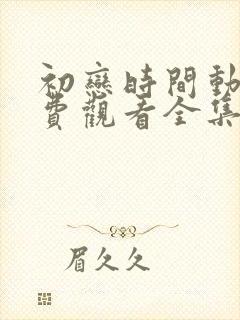 初戀時間動
費觀看全集
眉久久